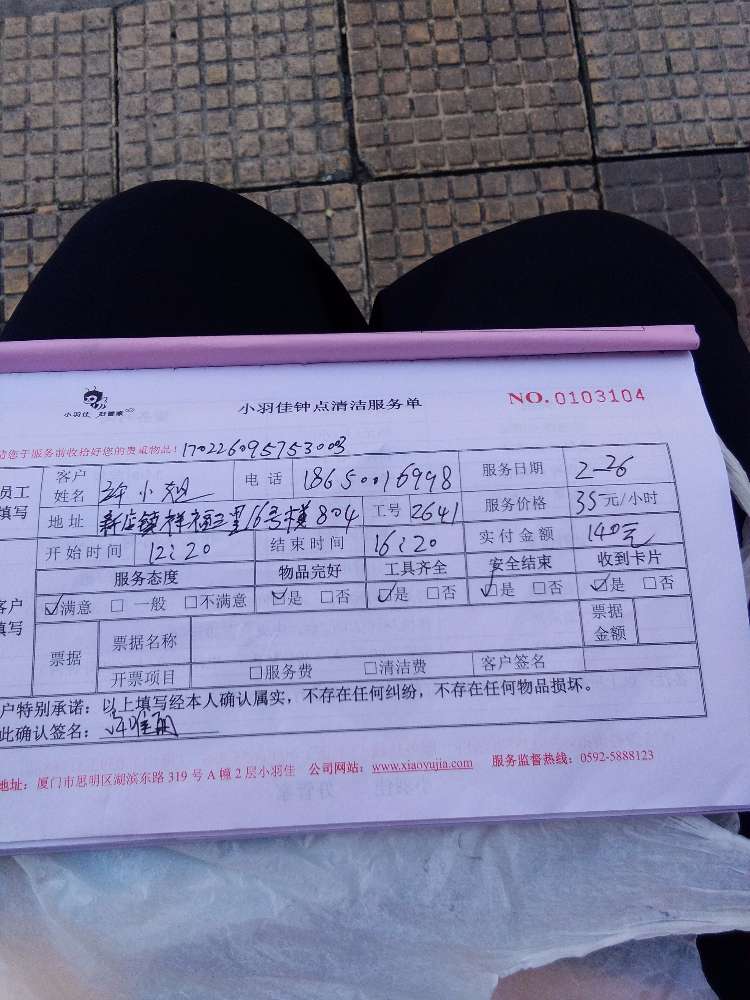 小羽佳 好管家
小羽佳钟点清洁服务单
NO. 0103104
请您于服务前收拾好您的贵重物品! 170226095753003
员工填写
客户姓名 许小 电话 18650016998 服务日期 2-26
地址 新店镇祥福三里16号楼804 工号 2641 服务价格 35元/小时
开始时间 12:20 结束时间 16:20 实付金额 140元
客户填写
服务态度 物品完好 工具齐全 安全结束 收到卡片
☑满意 □一般 □不满意 ☑是 □否 ☑是 □否 ☑是 □否 ☑是 □否
票据 票据名称 票据金额
开票项目 □服务费 □清洁费 客户签名
户特别承诺:以上填写经本人确认属实,不存在任何纠纷,不存在任何物品损坏。
此确认签名:
地址:厦门市思明区湖滨东路 319 号 A 幢 2 层小羽佳 公司网站:www.xiaoyujia.com 服务监督热线:0592-5888123